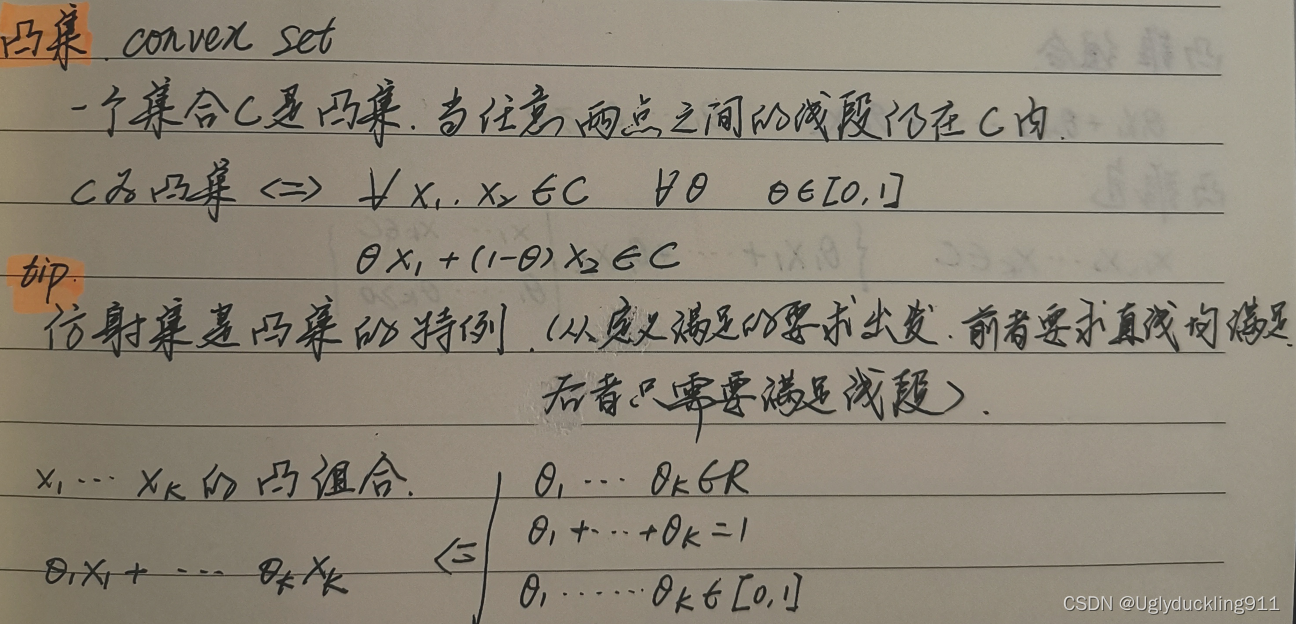 凸集. convex set
一个集合C是凸集. 当任意两点之间的线段仍在C内.
C为凸集 <=> ∀ x₁. x₂ ∈ C ∀θ θ∈[0,1]
θx₁+(1-θ)x₂∈C
tip.
仿射集是凸集的特例.(从定义满足的要求出发.前者要求直线均满足.
后者只需要满足线段).
x₁ ··· xₖ 的凸组合.
θ₁ ··· θₖ∈R
θ₁+···+θₖ=1
θ₁x₁+ ··· θₖxₖ <=
θ₁······θₖ∈[0,1]
CSDN @Uglyduckling911